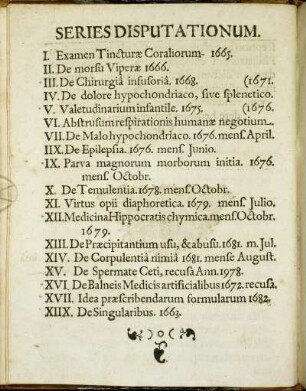 SERIES DISPUTATIONUM.
I. Examen Tincturæ Coraliorum- 1665.
II. De morsu Viperæ 1666.
*III. De Chirurgiâ infusoriâ. 1668. (1671.
IV. De dolore hypochondriaco, sive splenetico.
*V. Valetudinarium infantile. 1675. (1676.
VI. Abstrusum respirationis humanæ negotium.
VII. De Malo hypochondriaco. 1676. mens. April.
IIX. De Epilepsia. 1676. mens. Junio.
*IX. Parva magnorum morborum initia. 1676.
mens. Octobr.
X. De Temulentia. 1678. mens. Octobr.
XI. Virtus opii diaphoretica. 1679. mens. Julio.
*XII. Medicina Hippocratis chymica. mens. Octobr.
1679.
XIII. De Præcipitantium usu, & abusu. 1681. m. Jul.
XIV. De Corpulentiâ nimiâ 1681. mense August.
XV. De Spermate Ceti, recusa Ann. 1978.
*XVI. De Balneis Medicis artificialibus 1672. recusa.
XVII. Idea præscribendarum formularum 1682.
XIIX. De Singularibus. 1663.